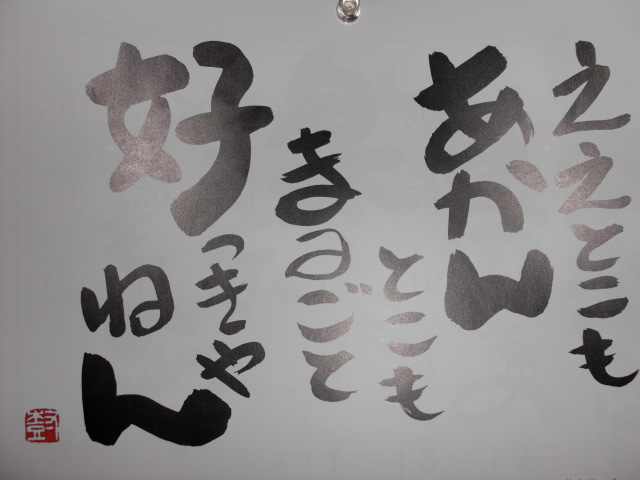 ええとこも
あかん
とこも
まるごと
好っきゃ
ねん